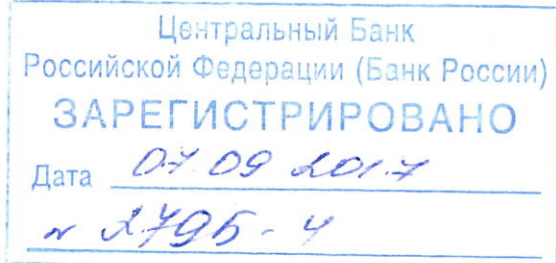 Центральный Банк
Российской Федерации (Банк России)
ЗАРЕГИСТРИРОВАНО
Дата 07 09 2017
№ 2795-У